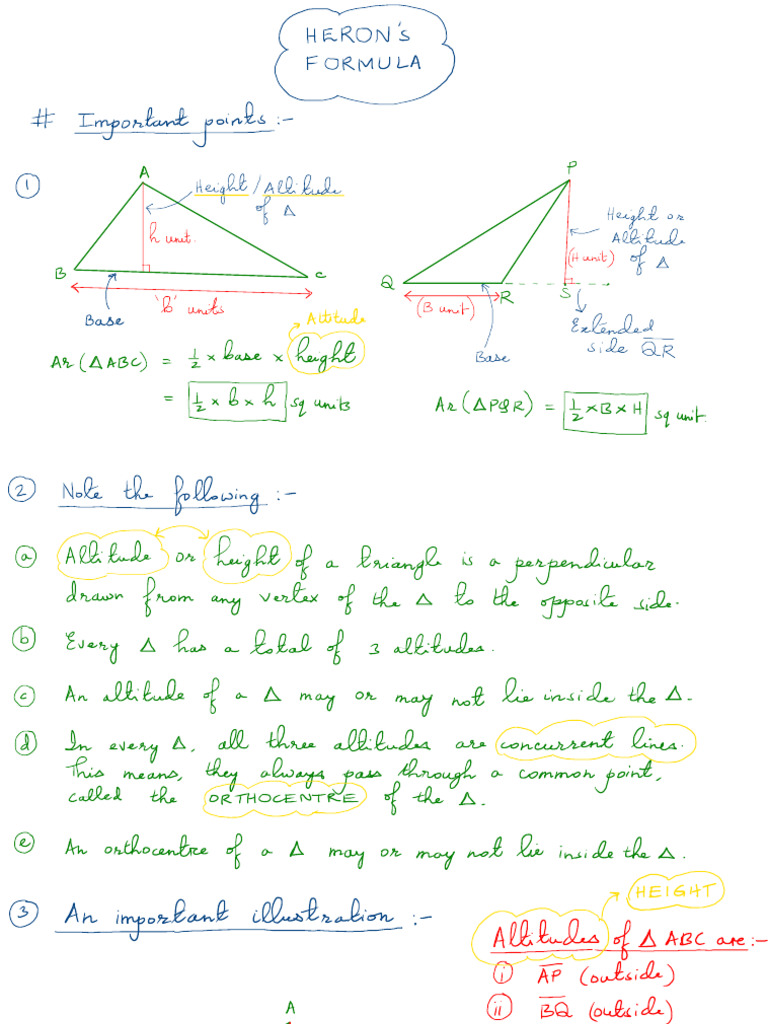 HERON'S
FORMULA
# Important points :-
①
A
Height / Altitude
of Δ
h unit.
B
C
'b' units
Base
P
Height or
Altitude
of Δ
(H unit)
Q
R
S
(B unit)
Base
Extended
side QR
Altitude
Ar (ΔABC) = 1/2 × base × height
= 1/2 × b × h sq units
Ar (ΔPQR) = 1/2 × B × H sq unit.
② Note the following :-
ⓐ Altitude or height of a triangle is a perpendicular
drawn from any vertex of the Δ to the opposite side.
ⓑ Every Δ has a total of 3 altitudes.
ⓒ An altitude of a Δ may or may not lie inside the Δ.
ⓓ In every Δ, all three altitudes are concurrent lines.
This means, they always pass through a common point,
called the ORTHOCENTRE of the Δ.
ⓔ An orthocentre of a Δ may or may not lie inside the Δ.
③ An important illustration :-
HEIGHT
Altitudes of Δ ABC are :-
ⓘ AP (outside)
ii BQ (outside)
A